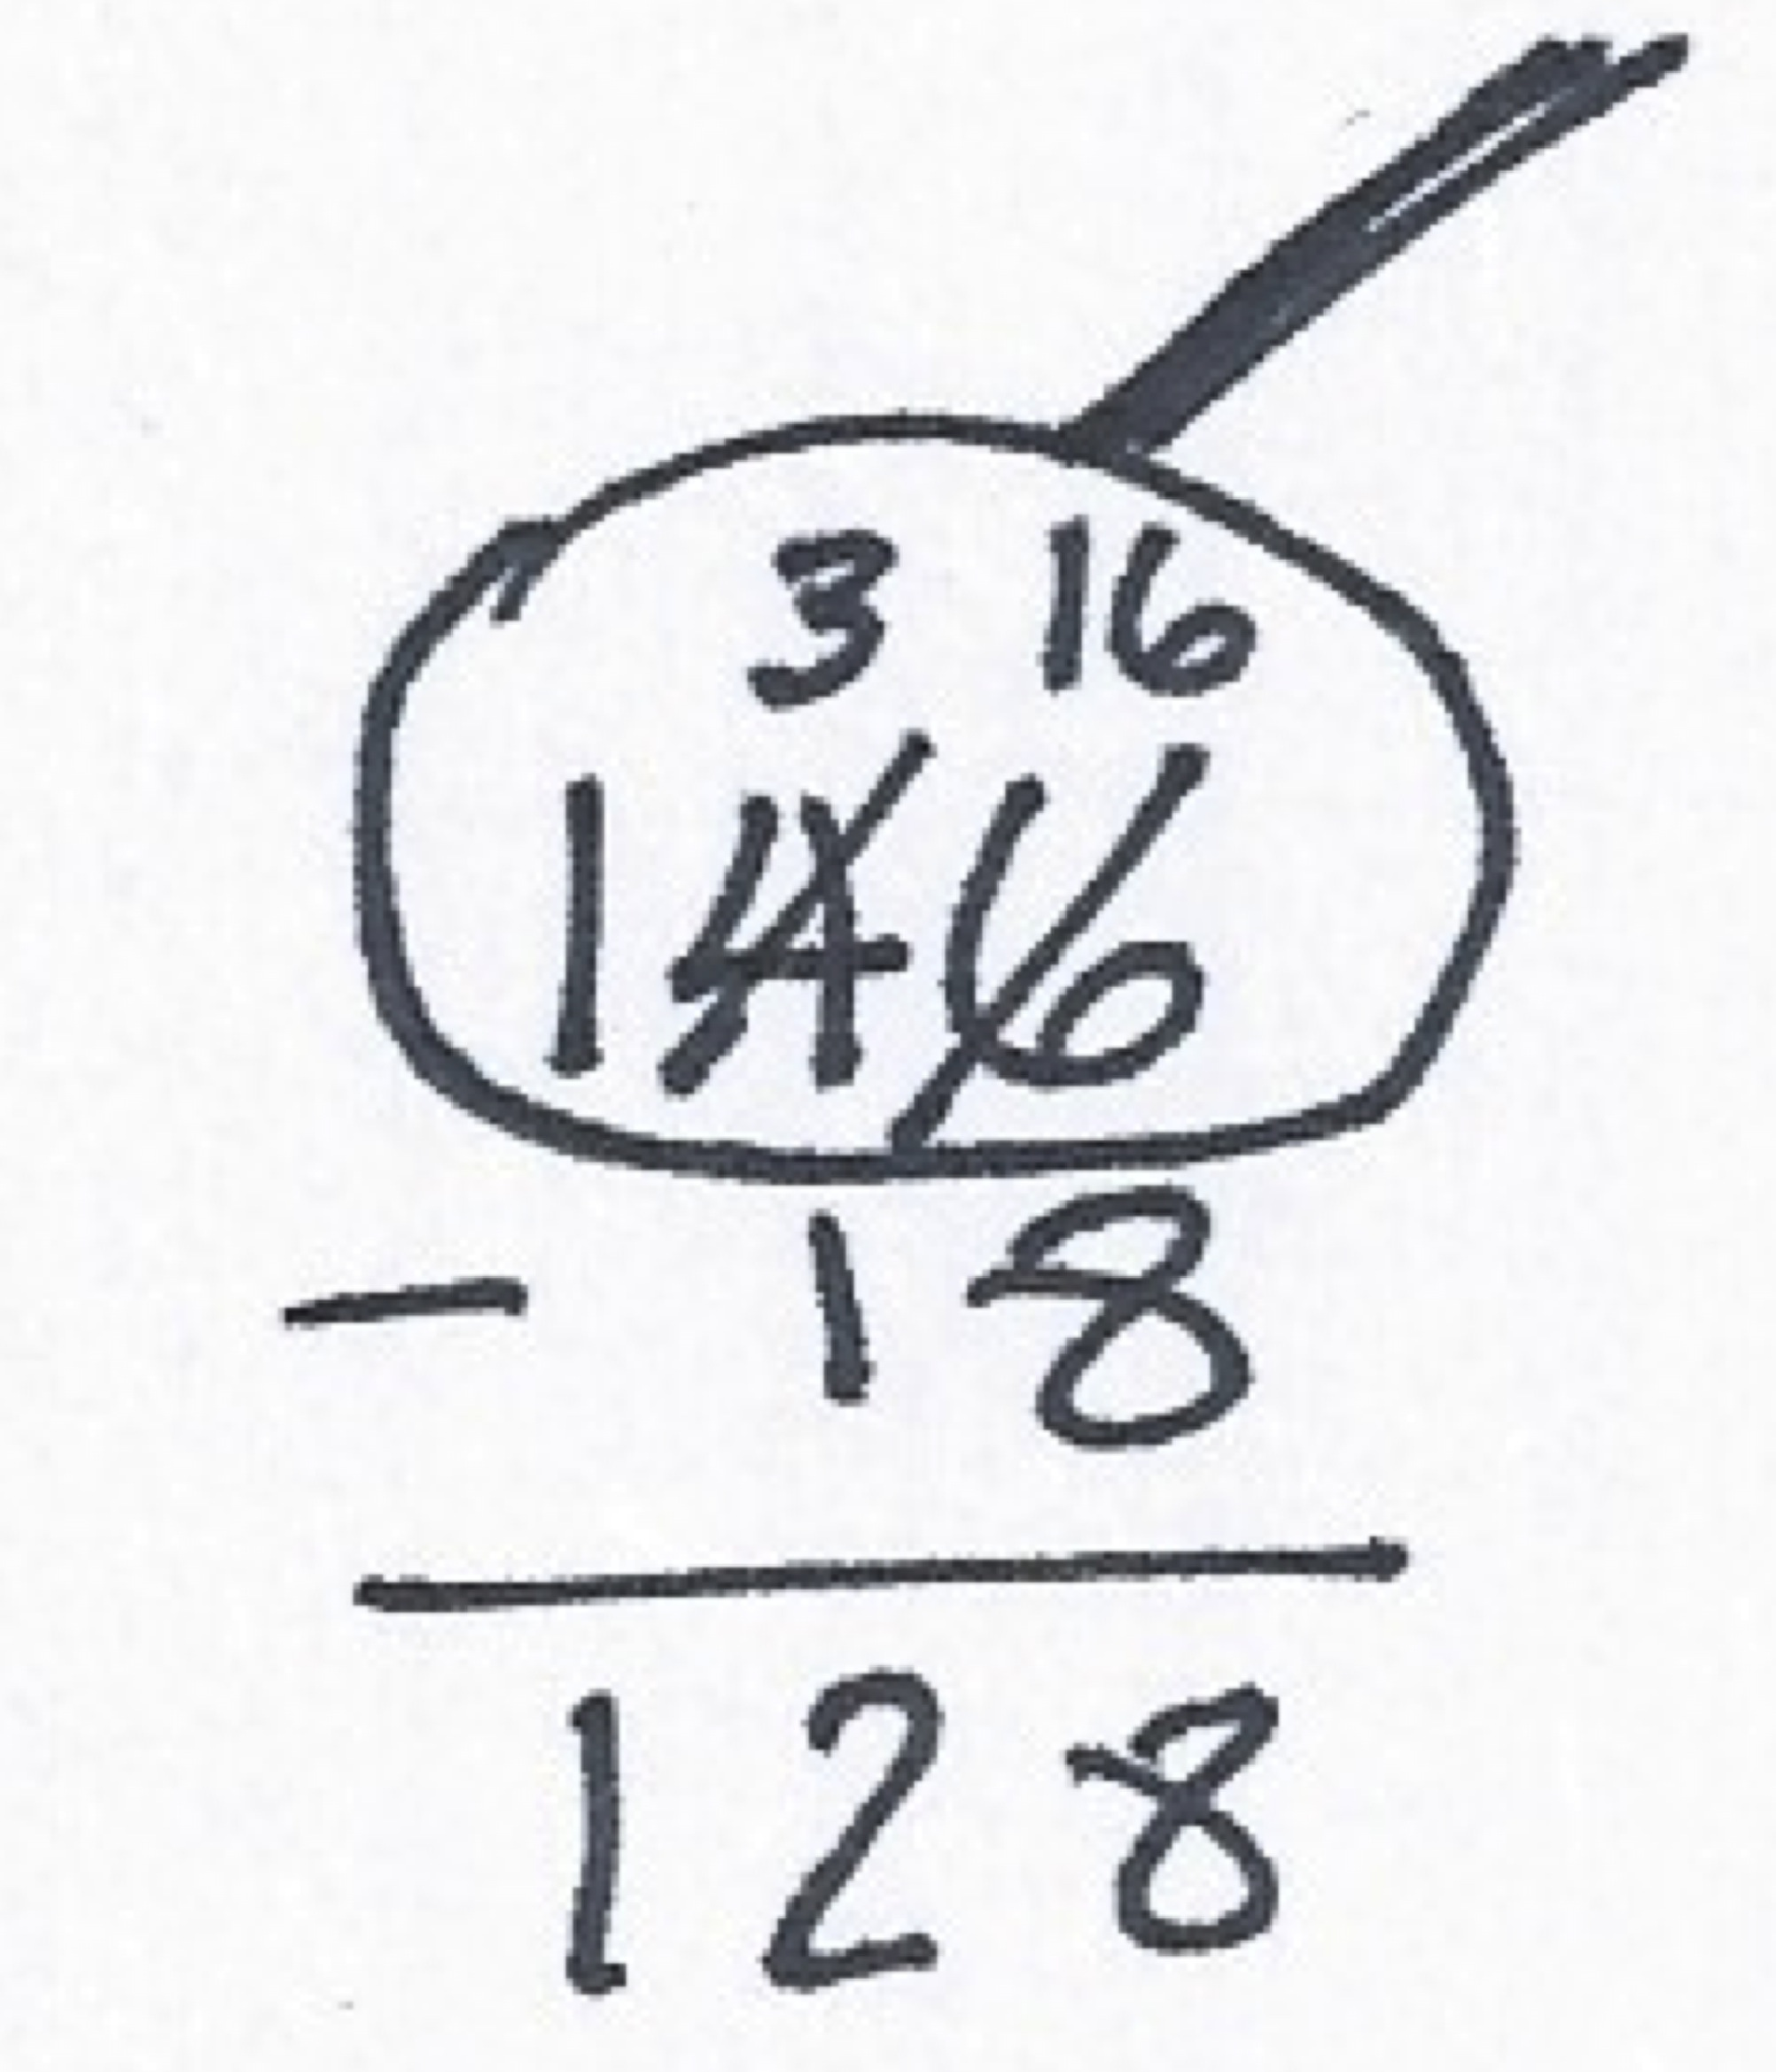 3 16
146
- 18
128